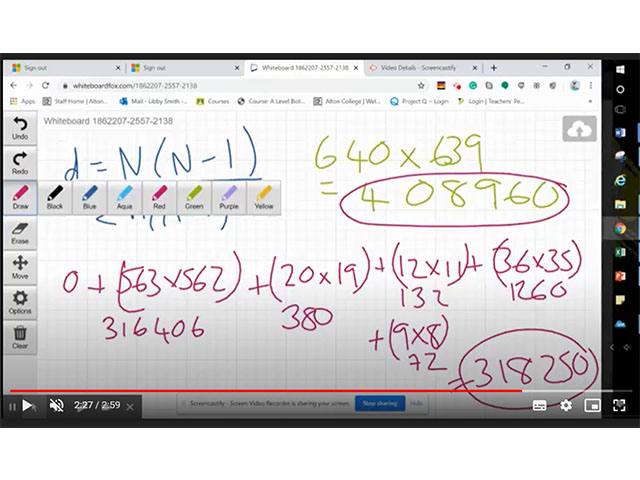 Sign out
Sign out
Whiteboard 1862207-2557-2138
Video Details - Screencastify
whiteboardfox.com/1862207-2557-2138
Apps
Staff Home | Alton...
Mail - Libby Smith -...
Courses
Course: A Level Biol...
Alton College | Wel...
Project Q – Login
Login | Teachers' Pe...
Whiteboard 1862207-2557-2138
Undo
Redo
Draw
Black
Blue
Aqua
Red
Green
Purple
Yellow
Erase
Move
Options
Clear
d = N(N-1)
640 x 639
= 408960
0 + (563 x 562) + (20 x 19) + (12 x 11) + (36 x 35)
316406 380 132 1260
+ (9 x 8)
72
= 318250
2:27 / 2:59
Screencastify - Screen Video Recorder is sharing your screen.
Stop sharing
Hide